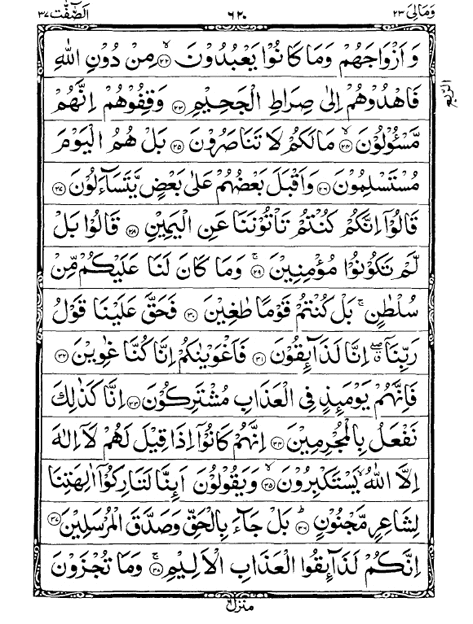 وَمَالِىَ ٢٣ ٦٢٠ اَلصّٰٓفّٰت ٣٧
وَاَزْوَاجَهُمْ وَمَا كَانُوْا يَعْبُدُوْنَ ۙ﴿٢٢﴾ مِنْ دُوْنِ اللهِ
فَاهْدُوْهُمْ اِلٰى صِرَاطِ الْجَحِيْمِ ﴿٢٣﴾ وَقِفُوْهُمْ اِنَّهُمْ
مَّسْـُٔوْلُوْنَ ۙ﴿٢٤﴾ مَا لَكُمْ لَا تَنَاصَرُوْنَ ﴿٢٥﴾ بَلْ هُمُ الْيَوْمَ
مُسْتَسْلِمُوْنَ ﴿٢٦﴾ وَاَقْبَلَ بَعْضُهُمْ عَلٰى بَعْضٍ يَّتَسَآءَلُوْنَ ﴿٢٧﴾
قَالُوْۤا اِنَّكُمْ كُنْتُمْ تَاْتُوْنَنَا عَنِ الْيَمِيْنِ ﴿٢٨﴾ قَالُوْا بَلْ
لَّمْ تَكُوْنُوْا مُؤْمِنِيْنَ ۚ﴿٢٩﴾ وَمَا كَانَ لَنَا عَلَيْكُمْ مِّنْ
سُلْطٰنٍ ۚ بَلْ كُنْتُمْ قَوْمًا طٰغِيْنَ ﴿٣٠﴾ فَحَقَّ عَلَيْنَا قَوْلُ
رَبِّنَاۤ ۖ اِنَّا لَذَآئِقُوْنَ ﴿٣١﴾ فَاَغْوَيْنٰكُمْ اِنَّا كُنَّا غٰوِيْنَ ﴿٣٢﴾
فَاِنَّهُمْ يَوْمَئِذٍ فِى الْعَذَابِ مُشْتَرِكُوْنَ ﴿٣٣﴾ اِنَّا كَذٰلِكَ
نَفْعَلُ بِالْمُجْرِمِيْنَ ﴿٣٤﴾ اِنَّهُمْ كَانُوْۤا اِذَا قِيْلَ لَهُمْ لَاۤ اِلٰهَ
اِلَّا اللهُ ۙ يَسْتَكْبِرُوْنَ ۙ﴿٣٥﴾ وَيَقُوْلُوْنَ اَئِنَّا لَتَارِكُوْۤا اٰلِهَتِنَا
لِشَاعِرٍ مَّجْنُوْنٍ ؕ﴿٣٦﴾ بَلْ جَآءَ بِالْحَقِّ وَصَدَّقَ الْمُرْسَلِيْنَ ﴿٣٧﴾
اِنَّكُمْ لَذَآئِقُوا الْعَذَابِ الْاَلِيْمِ ۚ﴿٣٨﴾ وَمَا تُجْزَوْنَ
الربع
منزل